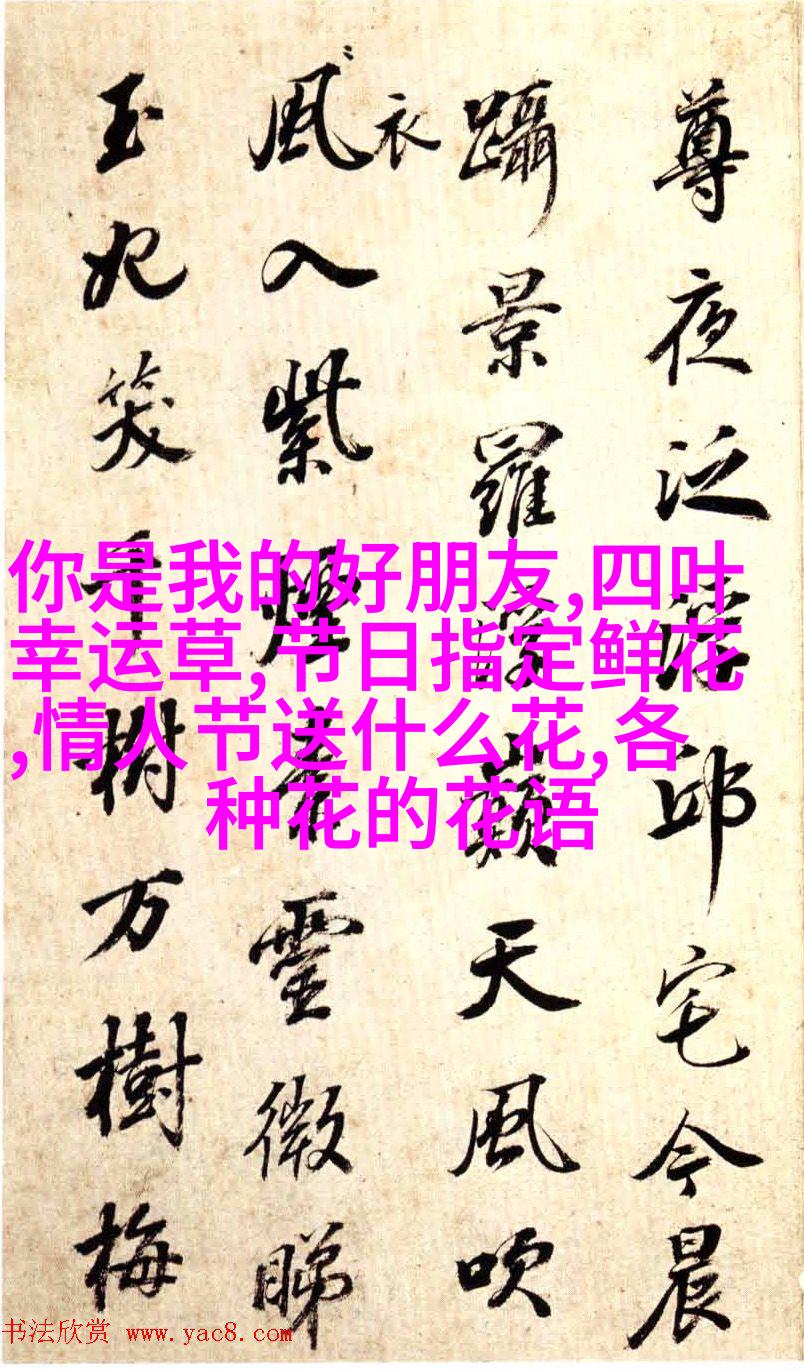 尊夜泛浮邱宅今晨
躡景羅浮巔天風吹
衣
風入紫煙靈微睇
玉妃笑千樹万樹梅
你是我的好朋友,四叶
幸运草,节日指定鲜花
,情人节送什么花,各
种花的花语
书法欣赏 www.yac8.com